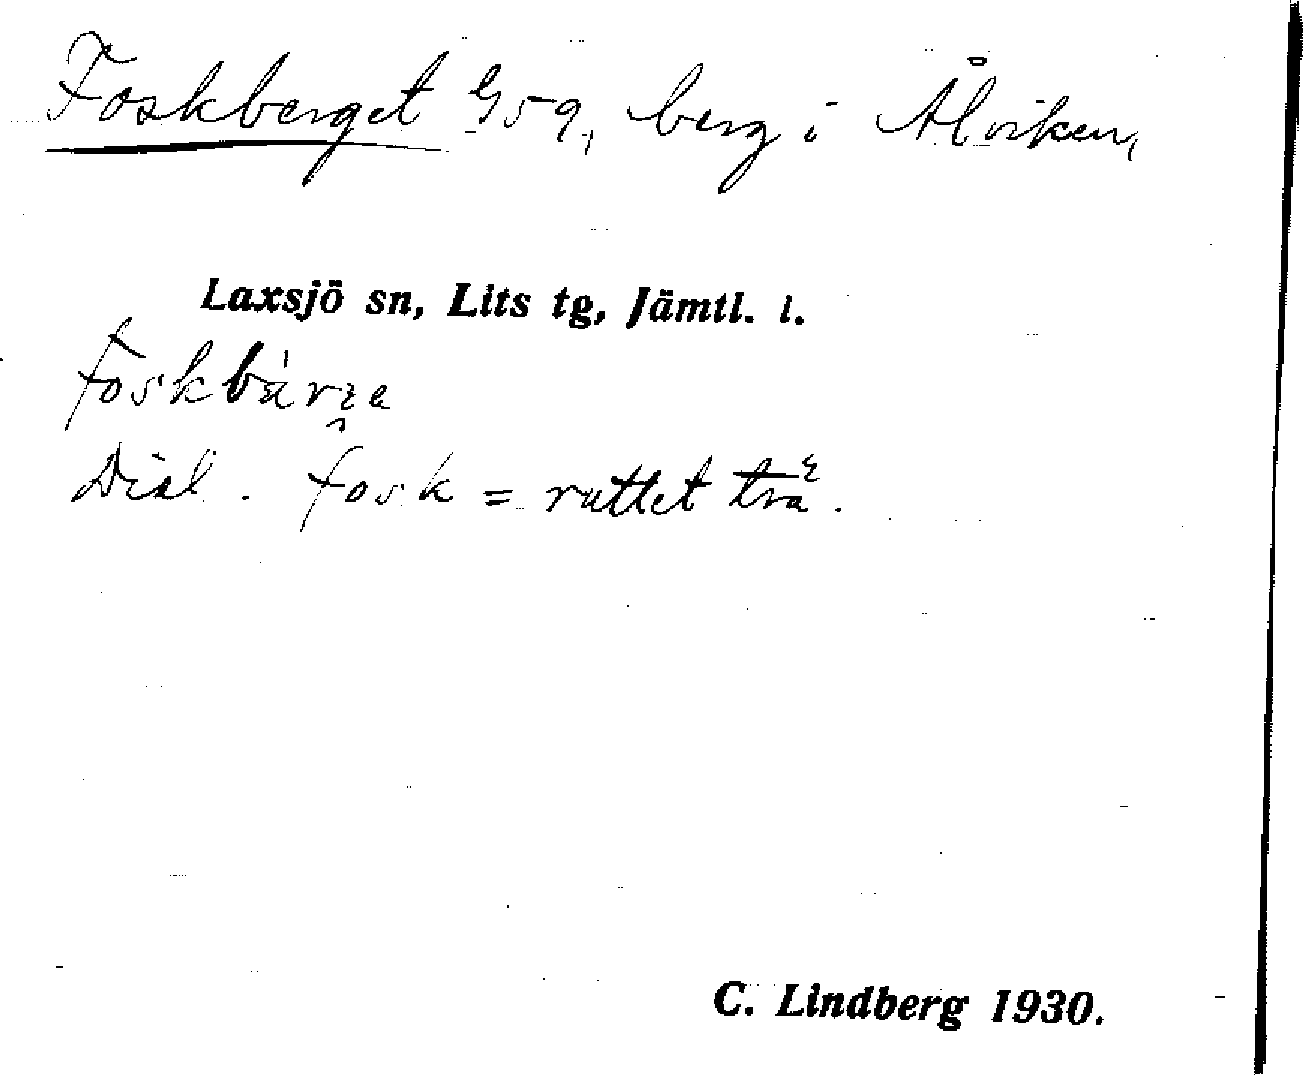 Foskberget G59, berg i Ålviken,
Laxsjö sn, Lits tg, Jämtl. l.
foskbärʒe
Dial. fosk = ruttet trä.
C. Lindberg 1930.